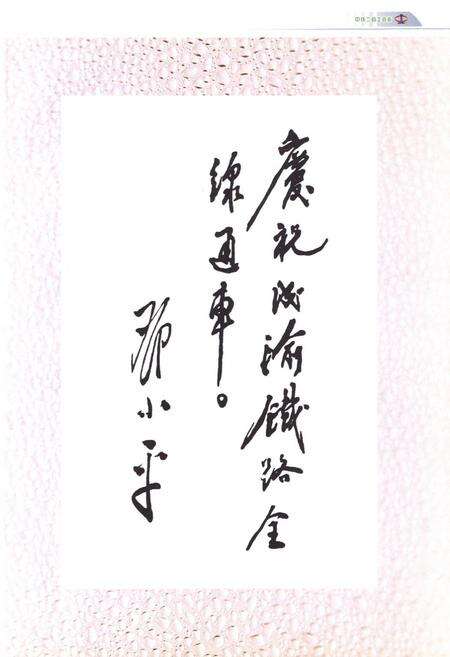 慶祝成渝鐵路全
線通車。
邓小平